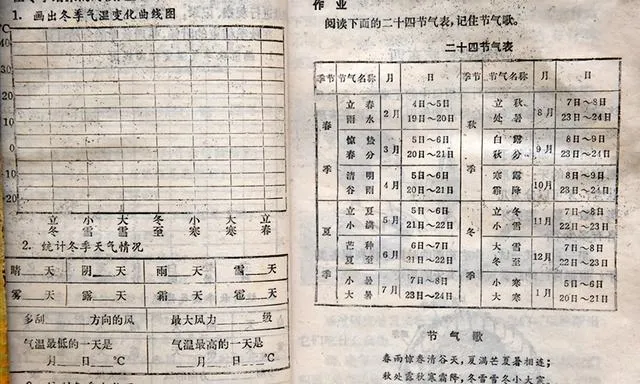 1. 画出冬季气温变化曲线图
℃
40
20
10
0
10
20
立冬 小雪 大雪 冬至 小寒 大寒 立春
2. 统计冬季天气情况
晴___天 阴___天 雨___天 雪___天
雾___天 露___天 霜___天 雹___天
多刮______方向的风 最大风力______级
气温最低的一天是 气温最高的一天是
___月___日___℃ ___月___日___℃
作业
阅读下面的二十四节气表,记住节气歌。
二十四节气表
季节 节气名称 月 日 季节 节气名称 月 日
春季 立春 2月 4日~5日 秋季 立秋 8月 7日~8日
雨水 19日~20日 处暑 23日~24日
惊蛰 3月 5日~6日 白露 9月 8日~9日
春分 20日~21日 秋分 23日~24日
清明 4月 5日~6日 寒露 10月 8日~9日
谷雨 20日~21日 霜降 23日~24日
夏季 立夏 5月 5日~6日 冬季 立冬 11月 7日~8日
小满 21日~22日 小雪 22日~23日
芒种 6月 6日~7日 大雪 12月 7日~8日
夏至 21日~22日 冬至 22日~23日
小暑 7月 7日~8日 小寒 1月 5日~6日
大暑 23日~24日 大寒 20日~21日
节气歌
春雨惊春清谷天,夏满芒夏暑相连;
秋处露秋寒霜降,冬雪雪冬小大寒。